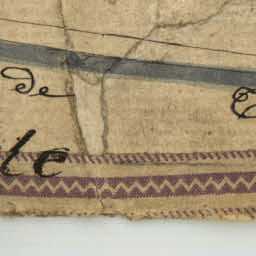 de
le